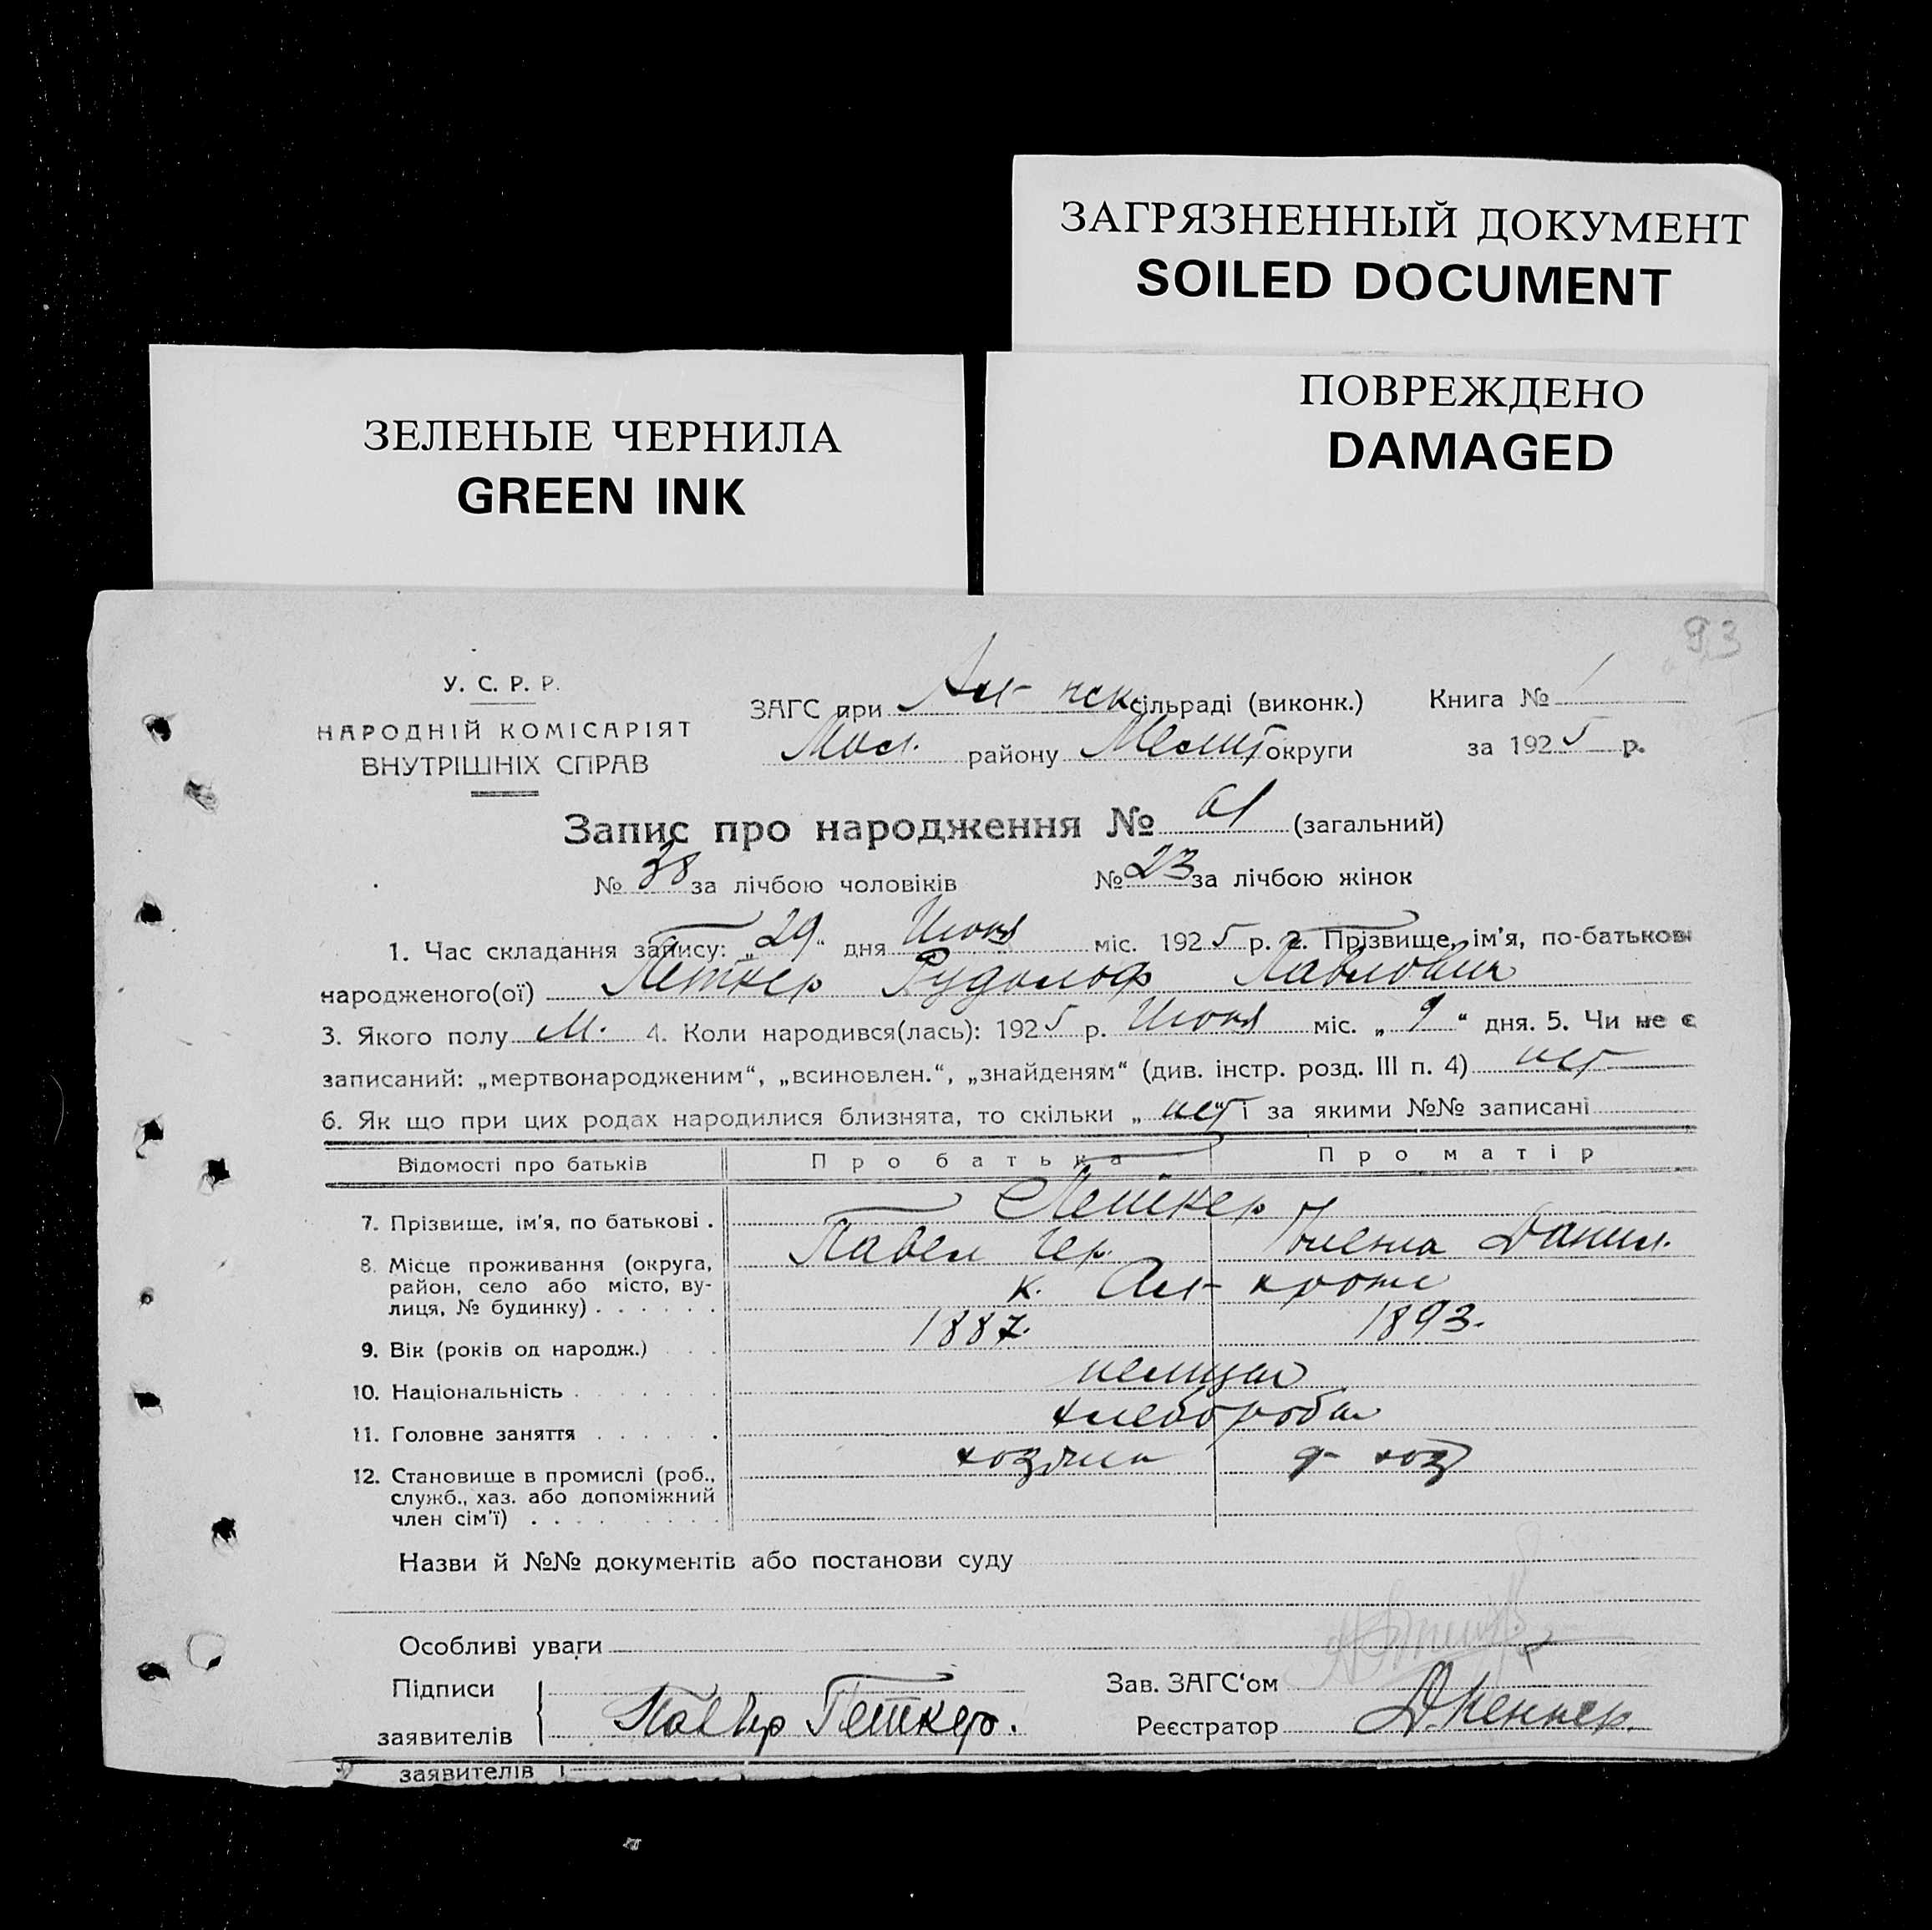 ЗАГРЯЗНЕННЫЙ ДОКУМЕНТ
SOILED DOCUMENT
ЗЕЛЕНЫЕ ЧЕРНИЛА
GREEN INK
ПОВРЕЖДЕНО
DAMAGED
93
У. С. Р. Р.
НАРОДНІЙ КОМІСАРІЯТ
ВНУТРІШНІХ СПРАВ
ЗАГС при сільраді (виконк.)
Мол. району Мелит округи
Книга № 1
за 1925 р.
Запис про народження № 61 (загальний)
№ 38 за лічбою чоловіків № 23 за лічбою жінок
1. Час складання запису: „29“ дня Июня міс. 1925 р. 2. Прізвище, ім'я, по-батькові
народженого(ої) Петкер Рудольф Павлович
3. Якого полу М. 4. Коли народився(лась): 1925 р. Июня міс. „ 9 “ дня. 5. Чи не є
записаний: „мертвонародженим“, „всиновлен.“, „знайденям“ (див. інстр. розд. III п. 4) нет
6. Як що при цих родах народилися близнята, то скільки „ нет “ і за якими №№ записані
Відомості про батьків Про батька Про матір
7. Прізвище, ім'я, по батькові . Петкер
Павел Гер. Данил.
8. Місце проживання (округа, район, село або місто, вулиця, № будинку) . . . . . . к.
9. Вік (років од народж.) . . . 1887. 1893.
10. Національність . . . . . . . немцы
11. Головне заняття . . . . . . хлеборобы
12. Становище в промислі (роб., служб., хаз. або допоміжний член сім'ї) . . . . . . . . . хозяин
Назви й №№ документів або постанови суду
Особливі уваги
Підписи
заявителів Петкер.
Зав. ЗАГС'ом
Реєстратор
заявителів